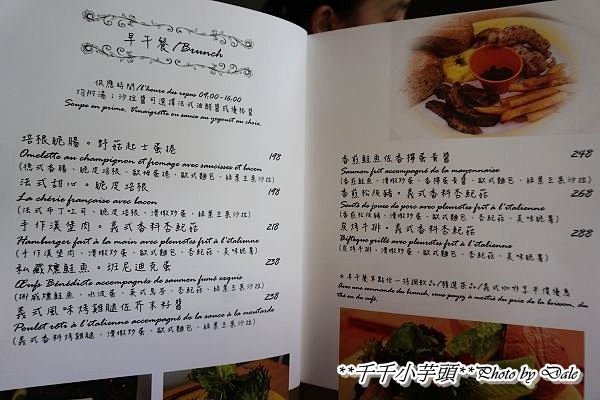 早午餐/Brunch
供應時間/l'heure des repas 09:00-16:00
均附湯;沙拉醬可選擇法式油醋醬或優格醬
Soupe en prime. Vinaigrette en sauce au yogourt au choix.
培根脆腸。野菇起士蛋捲 198
Omelette au champignon et fromage avec saucisses et bacon
(德式香腸、脆皮培根、歐姆蛋捲、歐式麵包、綠葉生菜沙拉)
法式甜心。脆皮培根 198
La chérie française avec bacon
(法式布丁吐司、脆皮培根、滑嫩炒蛋、歐式麵包、綠葉生菜沙拉)
手作漢堡肉。義式香料杏鮑菇 218
Hamburger fait à la main avec pleurotes frit à l'italienne
(手作漢堡肉、滑嫩炒蛋、歐式麵包、杏鮑菇、美味脆薯)
私藏燻鮭魚。班尼迪克蛋 238
Œufs Bénédicte accompagnés de saumon fumé exquis
(挪威燻鮭魚、水波蛋、英式馬芬、杏鮑菇、綠葉生菜沙拉)
義式風味烤雞腿佐芥末籽醬 238
Poulet rôti à l'italienne accompagné de la sauce à la moutarde
(義式香料烤雞腿、滑嫩炒蛋、歐式麵包、綠葉生菜沙拉)
香煎鮭魚佐香檸蛋黃醬 248
Saumon frit accompagné de la mayonnaise
(香煎鮭魚、滑嫩炒蛋、香檸蛋黃醬、歐式麵包、綠葉生菜沙拉)
香煎松阪豬。義式香料杏鮑菇 268
Sauté de joues de porc avec pleurotes frit à l'italienne
(香煎松阪豬、滑嫩炒蛋、歐式麵包、杏鮑菇、美味脆薯)
炭烤牛排。義式香料杏鮑菇 288
Bifteque grillé avec pleurotes frit à l'italienne
(炭烤牛排、滑嫩炒蛋、歐式麵包、杏鮑菇、美味脆薯)
*早午餐單點任一特調飲品/精選茶品/義式咖啡享半價優惠
Avec une commande du brunch, vous payez à moitié du prix de la boisson, du
thé ou du café.
**千千小芋頭**Photo by Dale